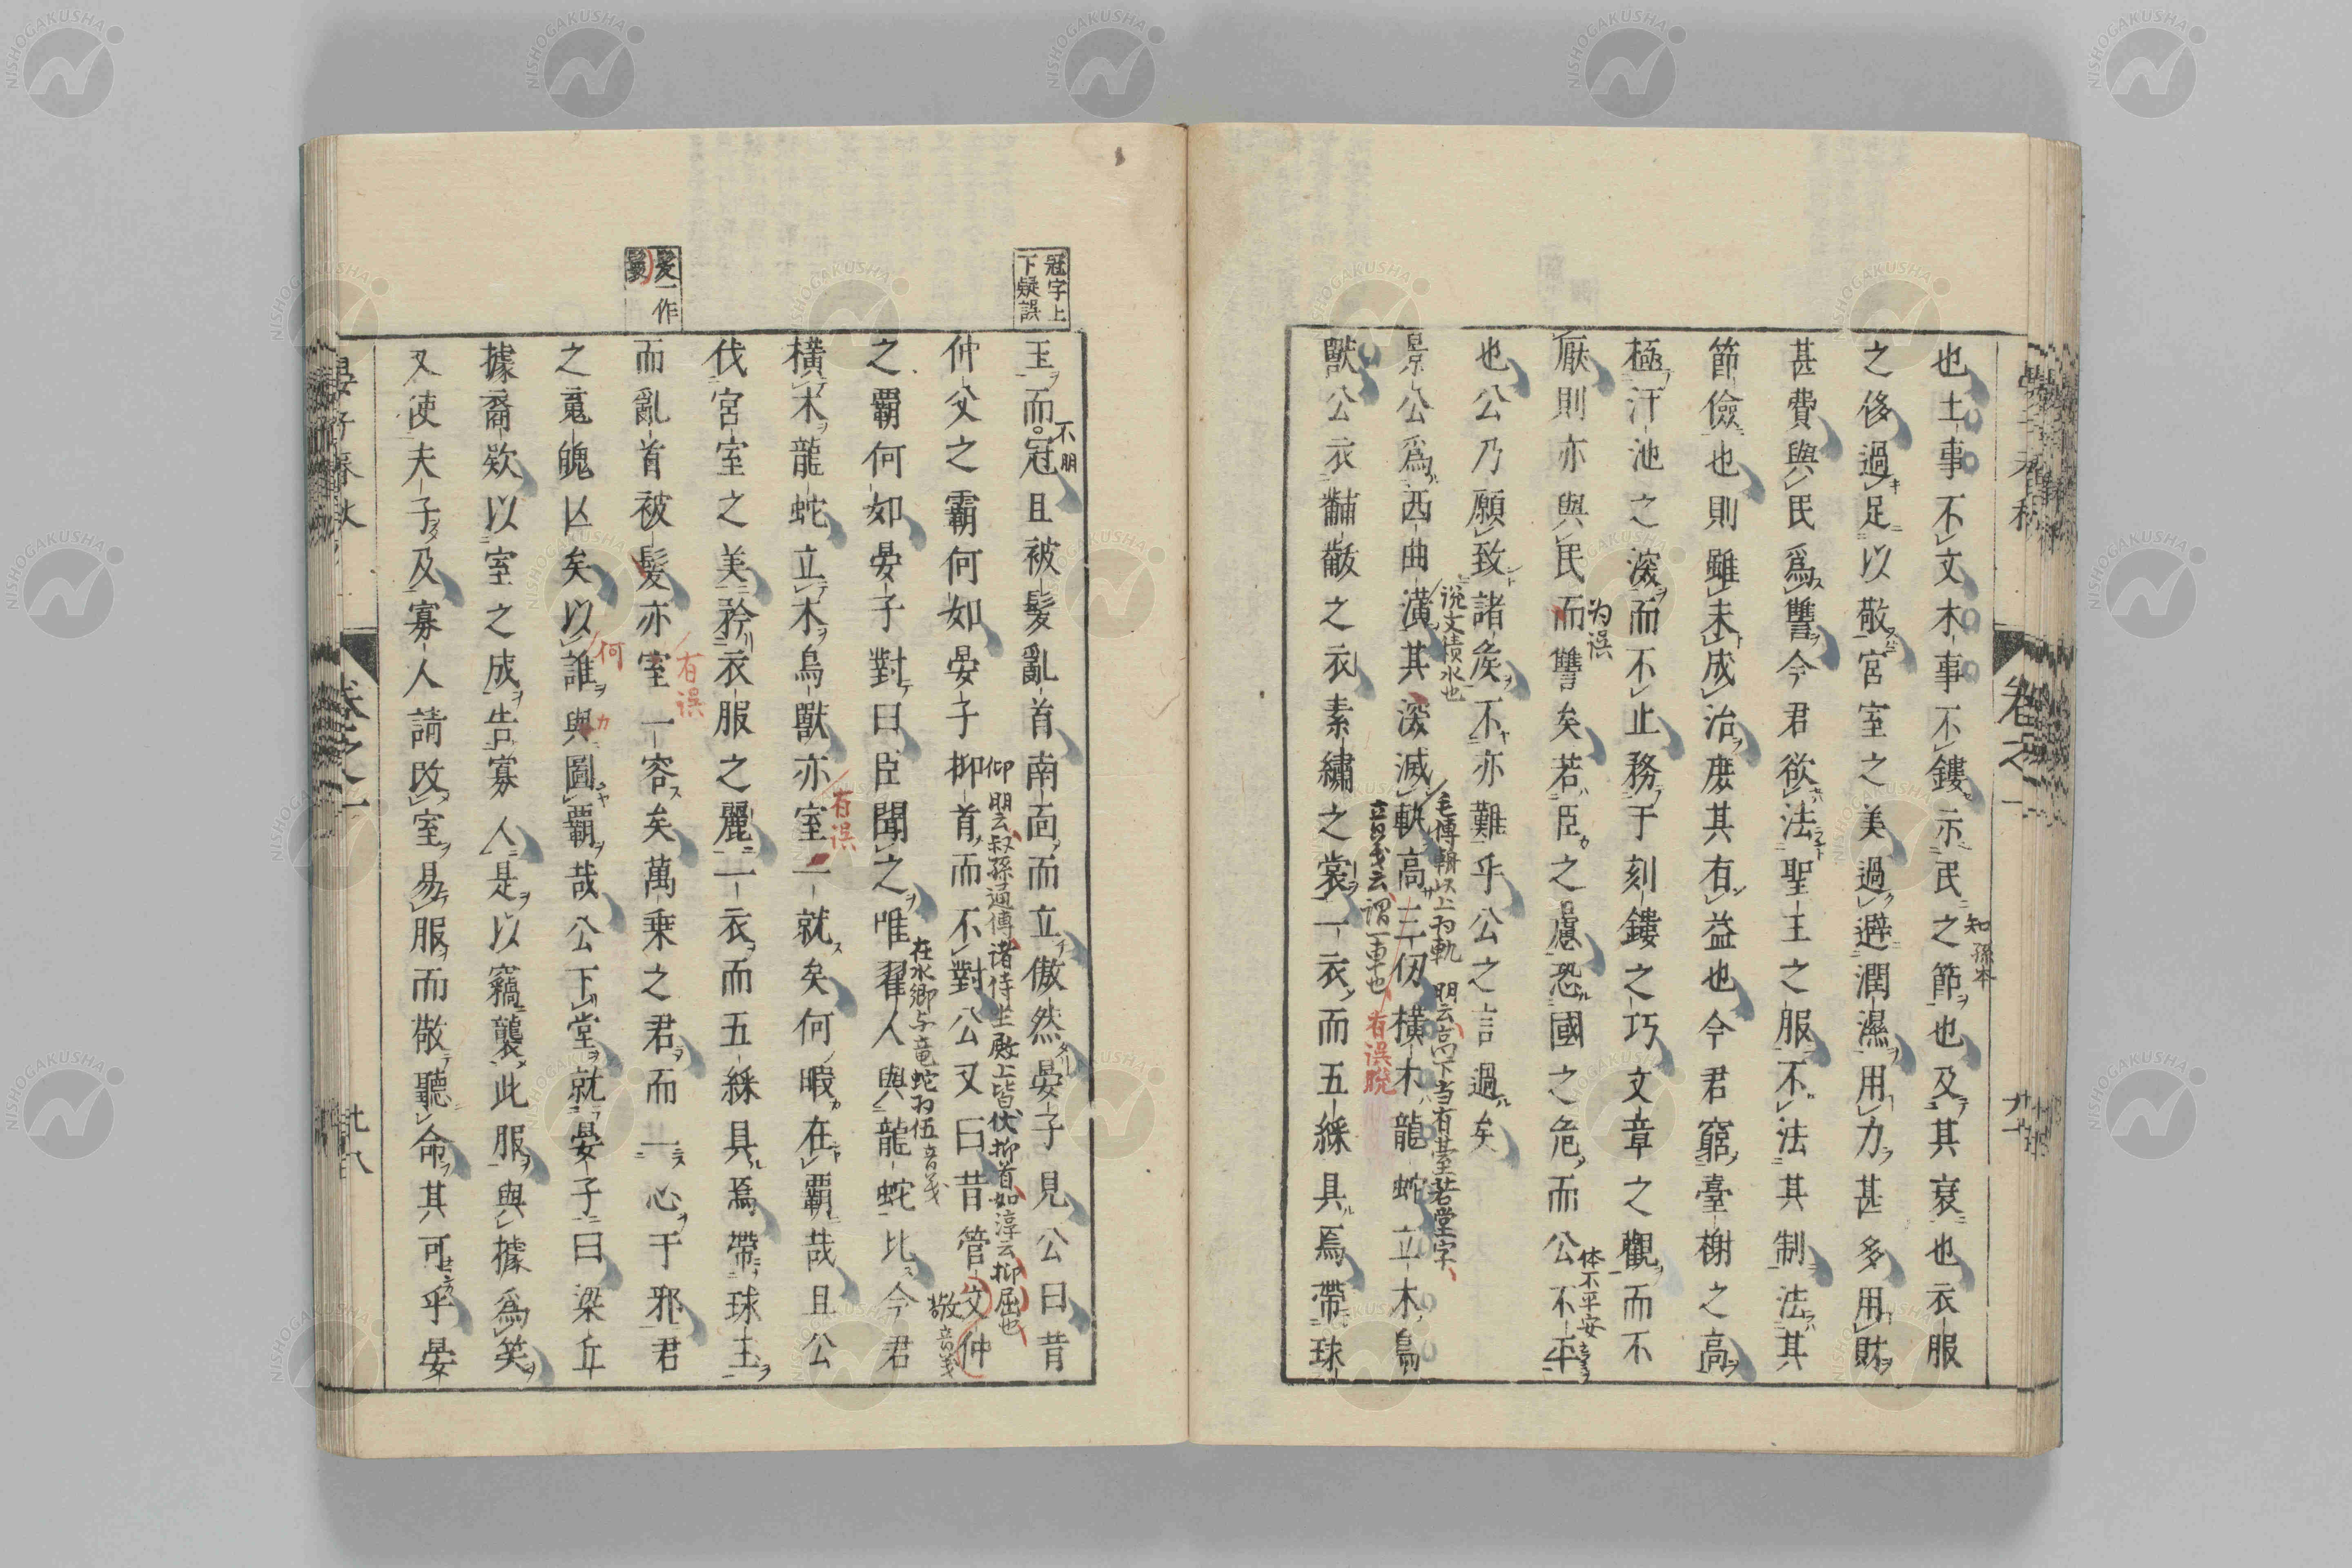 也土事不文木事不鏤示民之節也及其衰也衣服
之侈過足以敬宮室之美過避潤濕用力甚多用財
甚費與民爲讐今君欲法聖王之服不法其制法其
節儉也則雖未成治庶其有益也今君窮臺榭之高
極汙池之深而不止務于刻鏤之巧文章之觀而不
厭則亦與民而讐矣若臣之慮恐國之危而公不平
也公乃願致諸矦不亦難乎公之言過矣
景公爲西曲潢其深滅軌高三仭橫木龍蛇立木鳥
獸公衣黼黻之衣素繡之裳一衣而五綵具焉帶球
知孫本
为误
体不平安
说文積水也
毛傳輈以上为軌
閒云高下当有臺若堂字
音義云謂一車也
有误脫
冠字上
下疑誤
髮一作
玉而冠且被髮亂首南面而立傲然晏子見公曰昔
仲父之霸何如晏子抑首而不對公又曰昔管文仲
之霸何如晏子對曰臣聞之唯翟人與龍蛇比今君
橫木龍蛇立木鳥獸亦室一就矣何暇在霸哉且公
伐宮室之美矜衣服之麗一衣而五綵具焉帶球玉
而亂首被髮亦室一容矣萬乗之君而一心于邪君
之䰟魄亾矣以誰與圖霸哉公下堂就晏子曰梁丘
據裔欵以室之成告寡人是以竊襲此服與據爲笑
又使夫子及寡人請改室易服而敬聽命其可乎晏
不明
仰 閒云叔孫通傳諸侍坐殿上皆伏抑首如淳云抑屈也
在水鄉与竜蛇为伍音義
敬音義
有误
有误
何
晏子春秋
卷之一